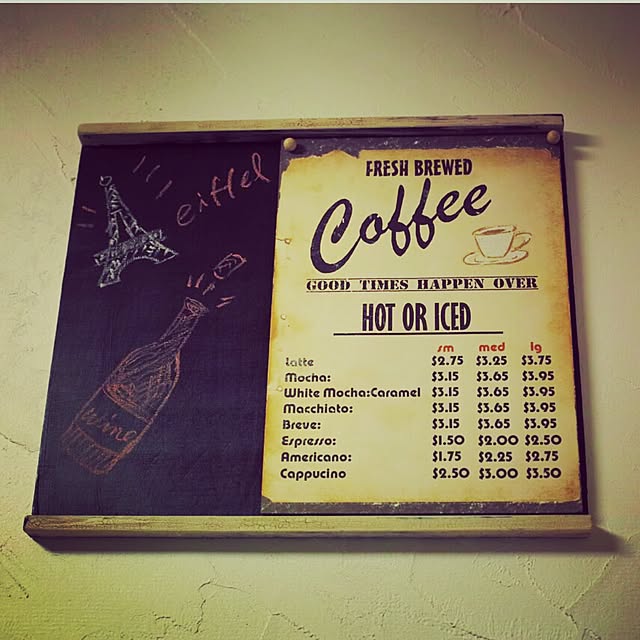 eiffel
wine
FRESH BREWED
Coffee
GOOD TIMES HAPPEN OVER
HOT OR ICED
sm med lg
Latte $2.75 $3.25 $3.75
Mocha: $3.15 $3.65 $3.95
White Mocha:Caramel $3.15 $3.65 $3.95
Macchiato: $3.15 $3.65 $3.95
Breve: $3.15 $3.65 $3.95
Espresso: $1.50 $2.00 $2.50
Americano: $1.75 $2.25 $2.75
Cappucino $2.50 $3.00 $3.50